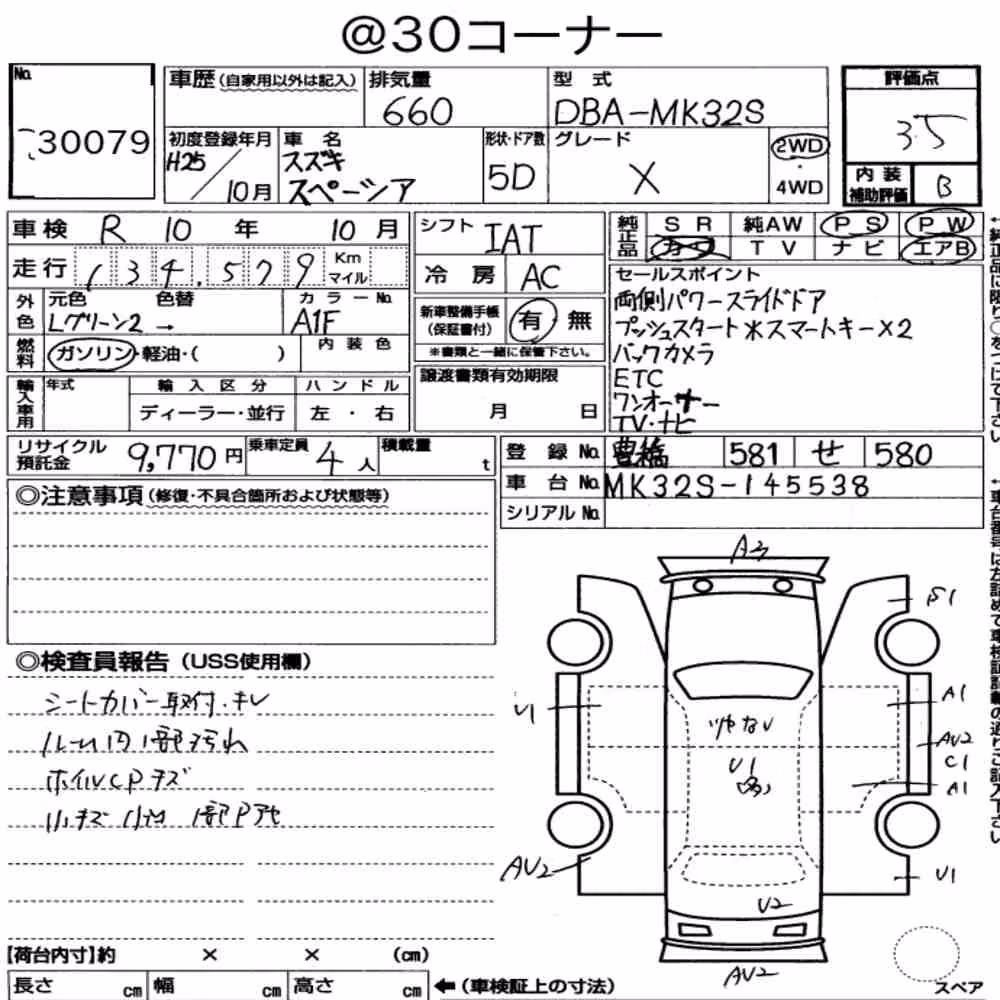 @30コーナー
No. 30079
車歴 (自家用以外は記入) 排気量 660 型式 DBA-MK32S
評価点 3.5
初度登録年月 H25/10月 車名 スズキ スペーシア 形状・ドア数 5D グレード X 2WD・4WD
内装補助評価 B
車検 R 10 年 10 月
シフト IAT
純正品 S R 純AW P S P W
カワ T V ナビ エアB
走行 134,579 Km マイル
冷房 AC
外色 元色 Lグリーン2 → 色替 カラーNo. A1F
新車整備手帳 (保証書付) 有 無
※書類と一緒に保管下さい。
燃料 ガソリン・軽油・( ) 内装色
セールスポイント
両側パワースライドドア
プッシュスタート*スマートキー×2
バックカメラ
ETC
ワンオーナー
TV・ナビ
輸入車用 年式 輸入区分 ディーラー・並行 ハンドル 左・右
譲渡書類有効期限 月 日
リサイクル預託金 9,770円 乗車定員 4人 積載量 t
登録No. 豊橋 581 せ 580
車台No. MK32S-145538
シリアルNo.
◎注意事項 (修復・不具合箇所および状態等)
◎検査員報告 (USS使用欄)
シートカバー取付・キレ
ルーム内1部汚れ
ホイルCPキズ
小キズ 小凹 1部P
A3
S1
U1
A1
AV2
C1
A1
U1
AV2
U1
U2
AV2
スペア
【荷台内寸】約 × × (cm)
長さ cm 幅 cm 高さ cm ←(車検証上の寸法)